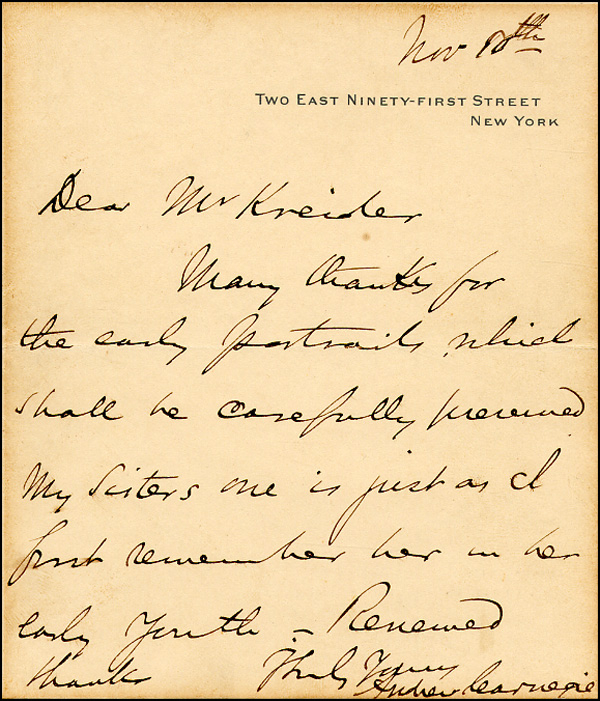 Nov 18th
Two East Ninety-first Street
New York
Dear Mr Kreider
Many thanks for
the early portraits which
shall be carefully preserved
My sisters one is just as I
first remember her in her
early youth – Renewed
thanks Truly Yours
Andrew Carnegie